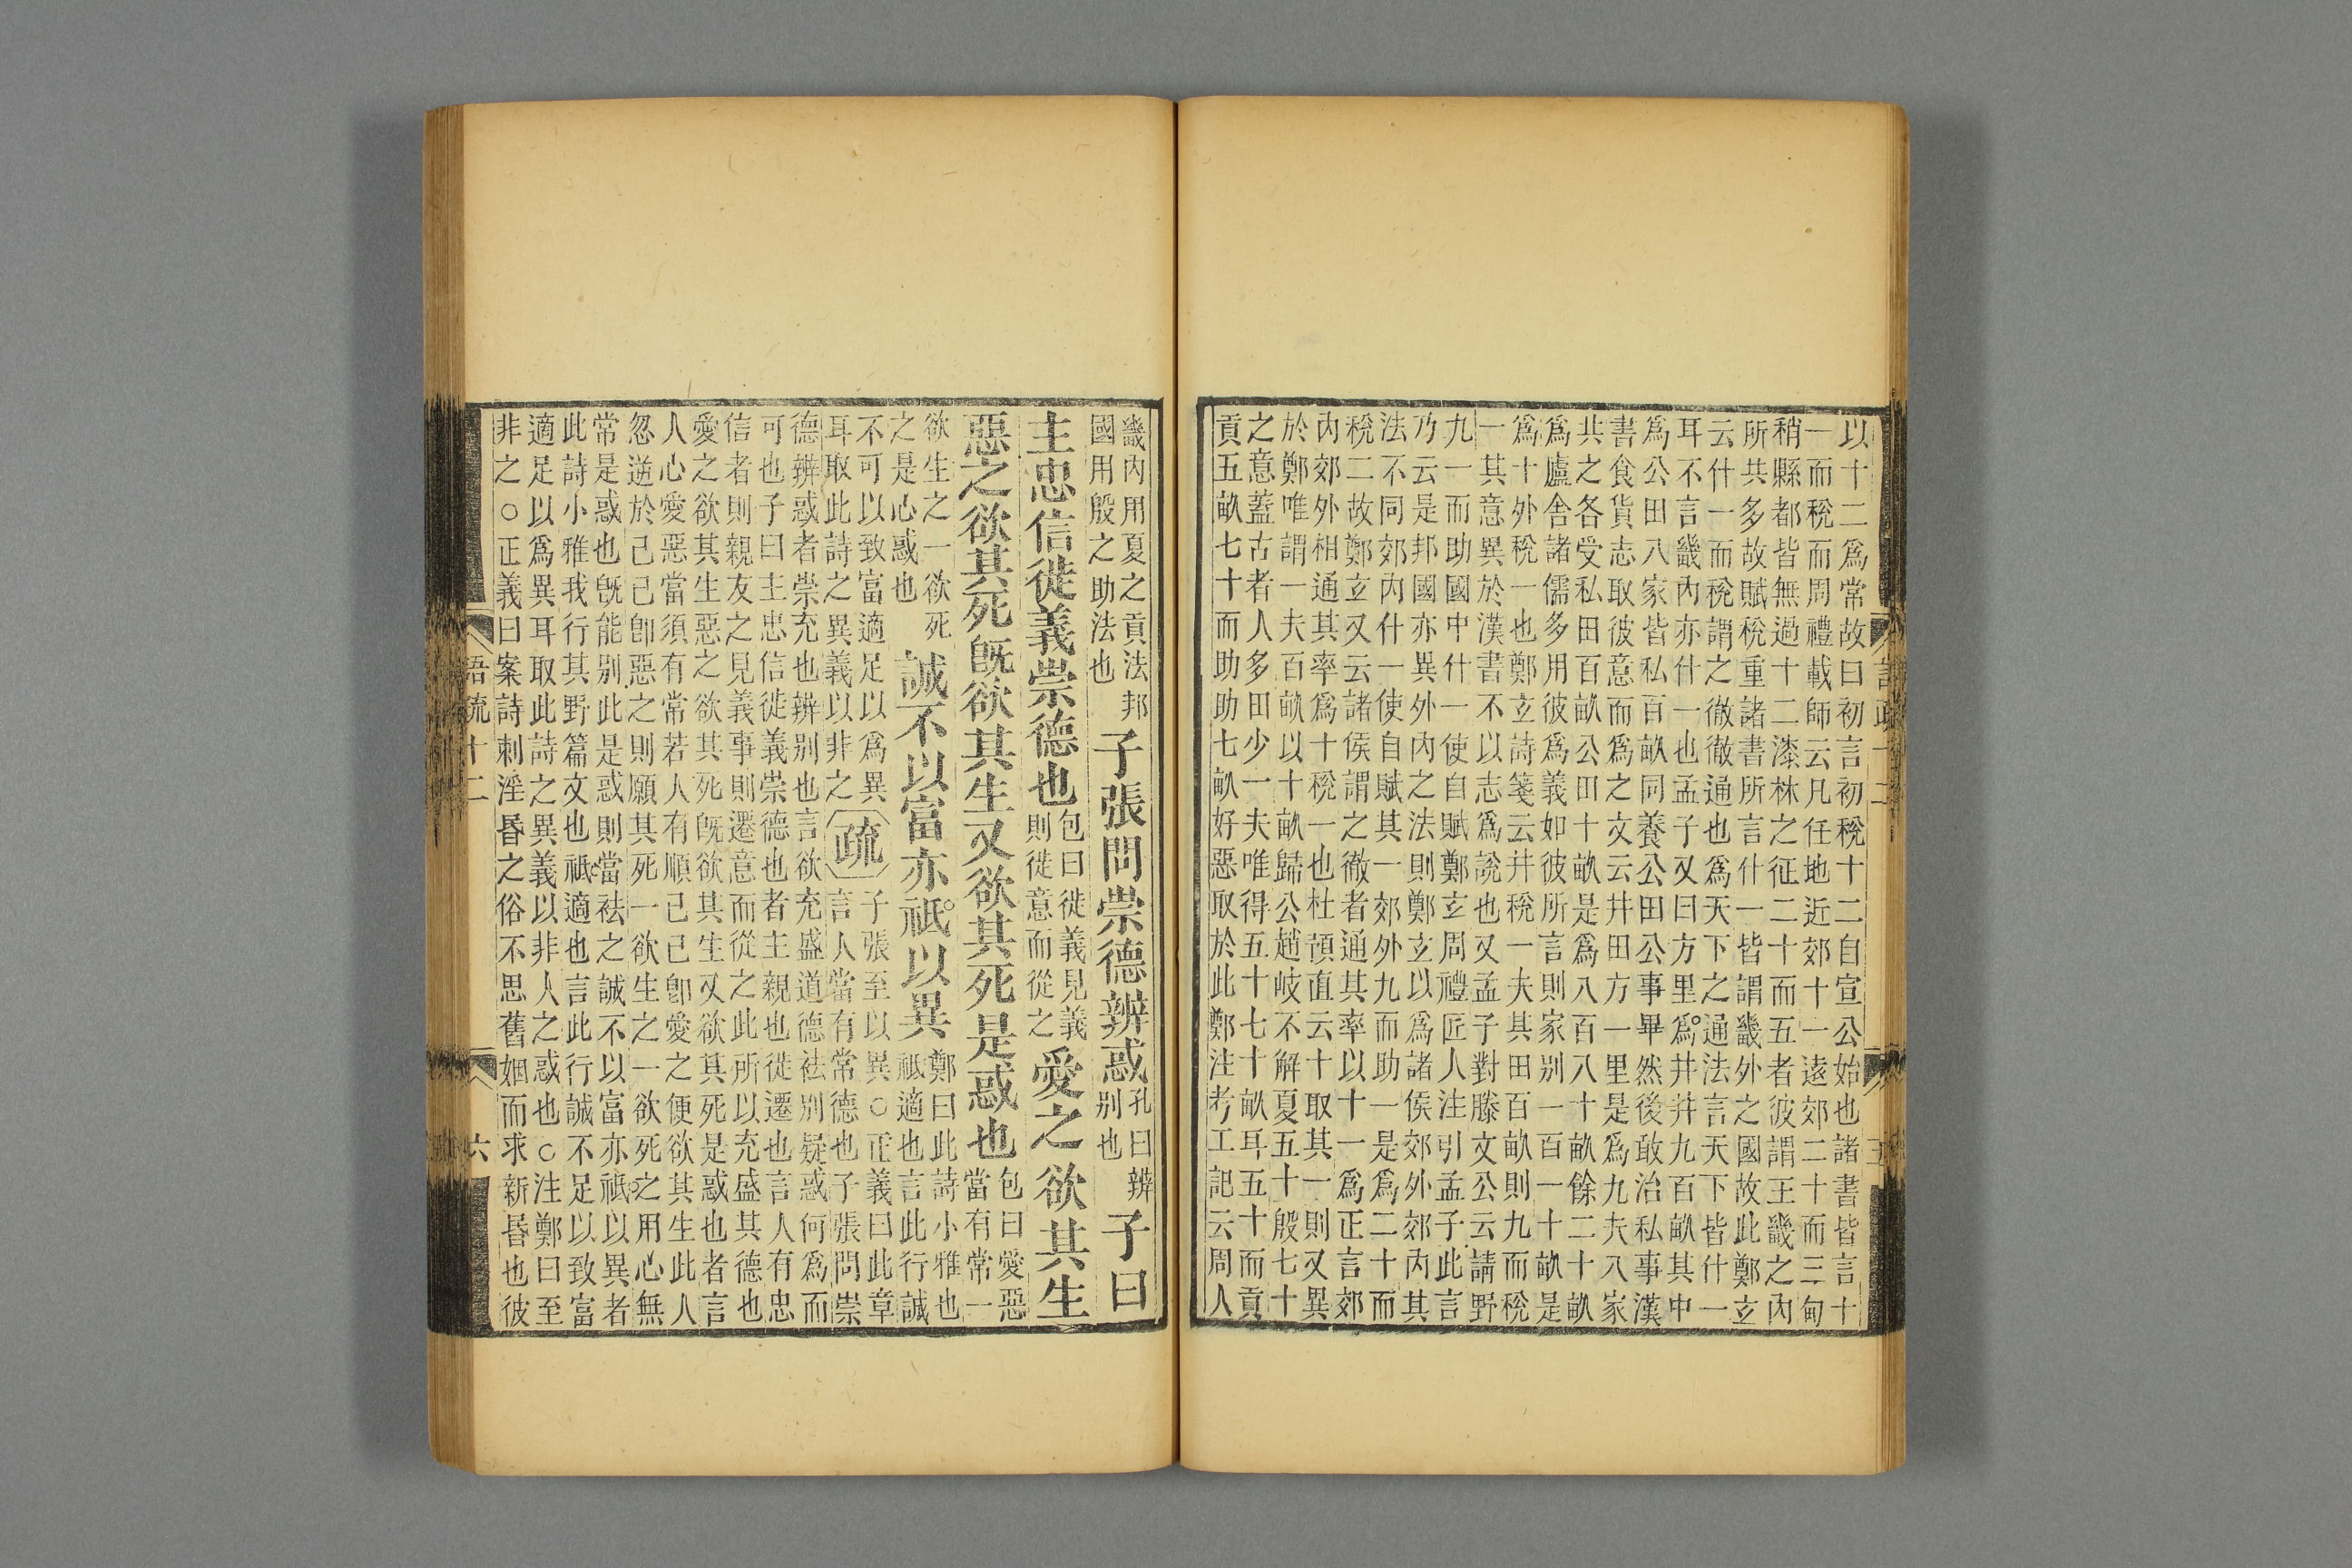 以十二爲常故曰初言初稅十二自宣公始也諸書皆言十
一而稅而周禮載師云凡任地近郊十一遠郊二十而三甸
稍縣都皆無過十二漆林之征二十而五者彼謂王畿之內
所共多故賦稅重諸書所言什一皆謂畿外之國故此鄭玄
云什一而稅謂之徹徹通也爲天下之通法言天下皆什一
耳不言畿內亦什一也孟子又曰方里爲井井九百畝其中
爲公田八家皆私百畝同養公田公事畢然後敢治私事漢
書食貨志取彼意而爲之文云井田方一里是爲九夫八家
共之各受私田百畝公田十畝是爲八百八十畝餘二十畝
爲廬舍諸儒多用彼爲義如彼所言則家别一百一十畝是
爲十外稅一也鄭玄詩箋云井稅一夫其田百畝則九而稅
一其意異於漢書不以志爲說也又孟子對滕文公云請野
九一而助國中什一使自賦鄭玄周禮匠人注引孟子此言
乃云是邦國亦異外內之法則鄭玄以爲諸侯郊外郊內其
法不同郊內什一使自賦其一郊外九而助一是爲二十而
稅二故鄭玄又云諸侯謂之徹者通其率以十一爲正言郊
內郊外相通其率爲十稅一也杜預直云十取其一則又異
於鄭唯謂一夫百畝以十畝歸公趙岐不解夏五十殷七十
之意蓋古者人多田少一夫唯得五十七十畝耳五十而貢
貢五畝七十而助助七畝好惡取於此鄭注考工記云周人
畿內用夏之貢法邦
國用殷之助法也
子張問崇德辨惑
孔曰辨
别也
子曰
主忠信徙義崇德也
包曰徙義見義
則徙意而從之
愛之欲其生
惡之欲其死旣欲其生又欲其死是惑也
包曰愛惡
當有常一
欲生之一欲死
之是心惑也
誠不以富亦祗以異
鄭曰此詩小雅也
祇適也言此行誠
不可以致富適足以爲異
耳取此詩之異義以非之
疏
子張至以異○正義曰此章
言人當有常德也子張問崇
德辨惑者崇充也辨别也言欲充盛道德袪别疑惑何爲而
可也子曰主忠信徙義崇德也者主親也徙遷也言人有忠
信者則親友之見義事則遷意而從之此所以充盛其德也
愛之欲其生惡之欲其死旣欲其生又欲其死是惑也者言
人心愛惡當須有常若人有順己己卽愛之便欲其生此人
忽逆於己己卽惡之則願其死一欲生之一欲死之用心無
常是惑也旣能别此是惑則當袪之誠不以富亦祗以異者
此詩小雅我行其野篇文也祗適也言此行誠不足以致富
適足以爲異耳取此詩之異義以非人之惑也○注鄭曰至
非之○正義曰案詩刺淫昬之俗不思舊姻而求新昬也彼
語疏十二
六